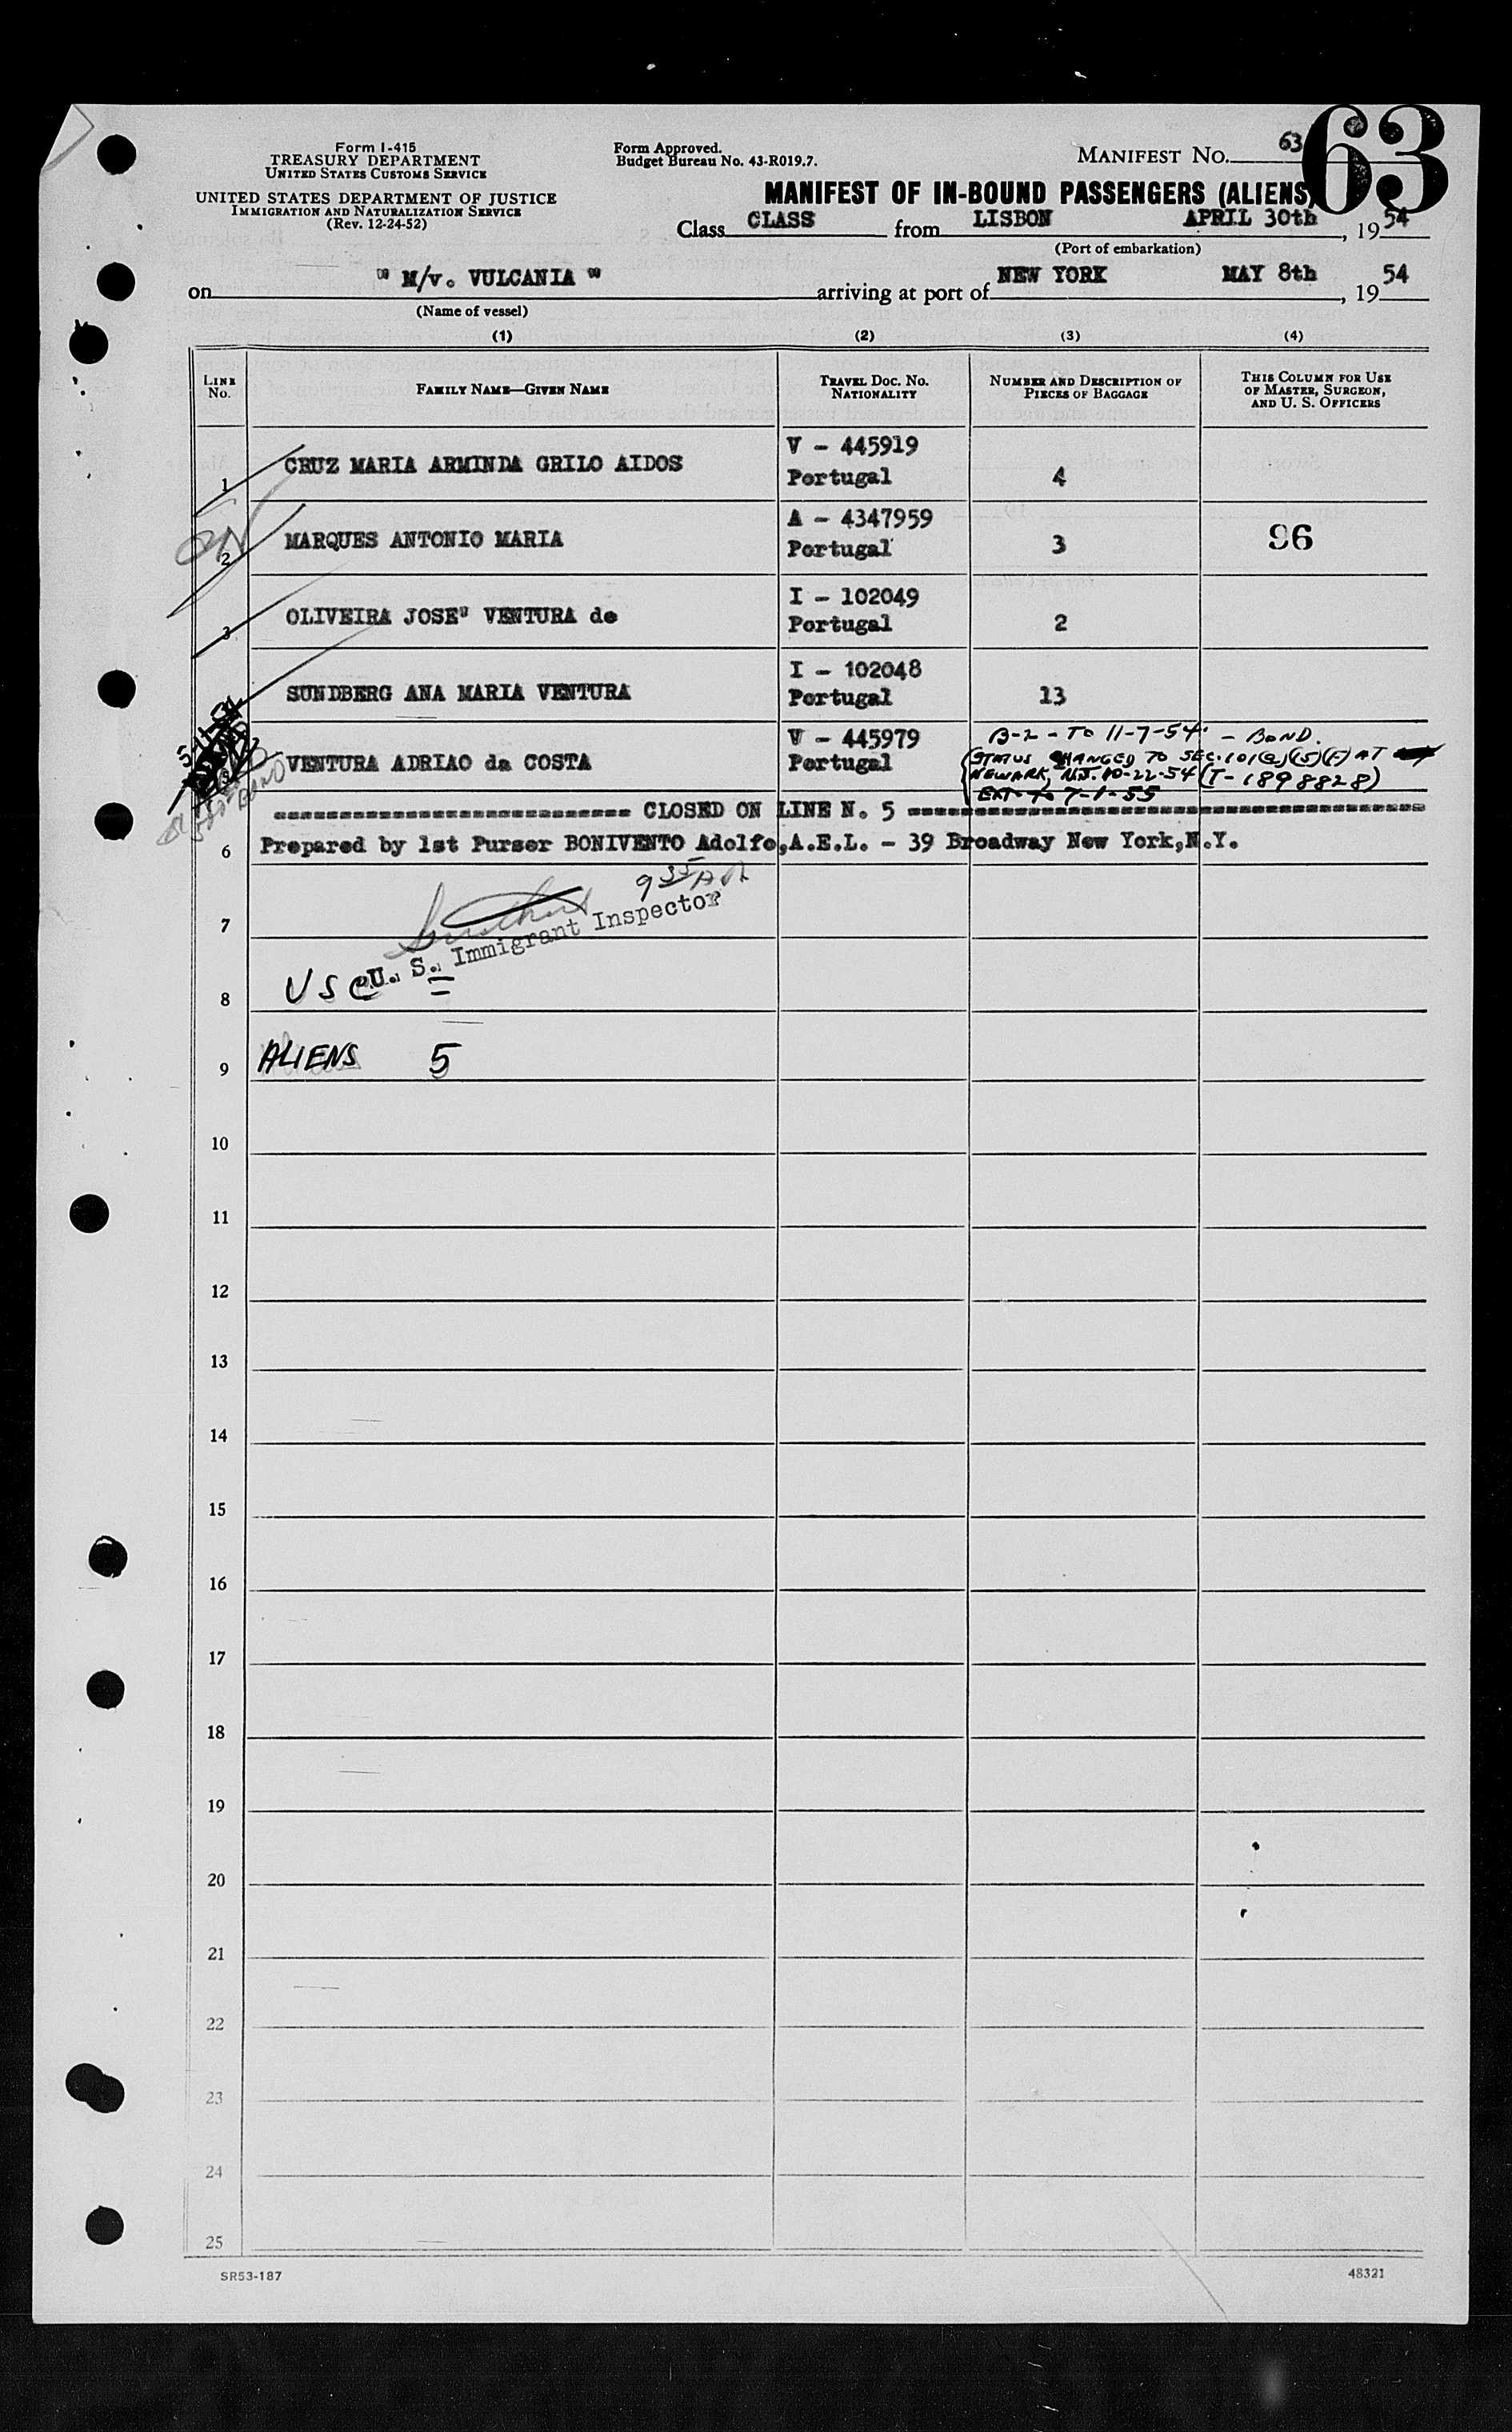 63
Form I-415
TREASURY DEPARTMENT
UNITED STATES CUSTOMS SERVICE
UNITED STATES DEPARTMENT OF JUSTICE
IMMIGRATION AND NATURALIZATION SERVICE
(Rev. 12-24-52)
Form Approved.
Budget Bureau No. 43-R019.7.
MANIFEST NO. 63
MANIFEST OF IN-BOUND PASSENGERS (ALIENS)
Class CLASS from LISBON APRIL 30th, 1954
(Port of embarkation)
on " M/v. VULCANIA " arriving at port of NEW YORK MAY 8th, 1954
(Name of vessel)
(1) (2) (3) (4)
LINE No. FAMILY NAME—GIVEN NAME TRAVEL DOC. NO. NATIONALITY NUMBER AND DESCRIPTION OF PIECES OF BAGGAGE THIS COLUMN FOR USE OF MASTER, SURGEON, AND U. S. OFFICERS
1 CRUZ MARIA ARMINDA GRILO AIDOS V - 445919 Portugal 4
2 MARQUES ANTONIO MARIA A - 4347959 Portugal 3 96
3 OLIVEIRA JOSE" VENTURA de I - 102049 Portugal 2
SUNDBERG ANA MARIA VENTURA I - 102048 Portugal 13
5-11-54
VENTURA ADRIAO da COSTA V - 445979 Portugal
B-2 - TO 11-7-54 - BOND.
(STATUS CHANGED TO SEC. 101(a)(15)(F) AT
NEWARK, N.J. 10-22-54 (T-1898828)
EXT to 7-1-55
BOND
CLOSED ON LINE N. 5
6 Prepared by 1st Purser BONIVENTO Adolfo,A.E.L. - 39 Broadway New York,N.Y.
9 35 AM
7
U. S. Immigrant Inspector
8 USC =
9 ALIENS 5
10
11
12
13
14
15
16
17
18
19
20
21
22
23
24
25
SR53-187
48321